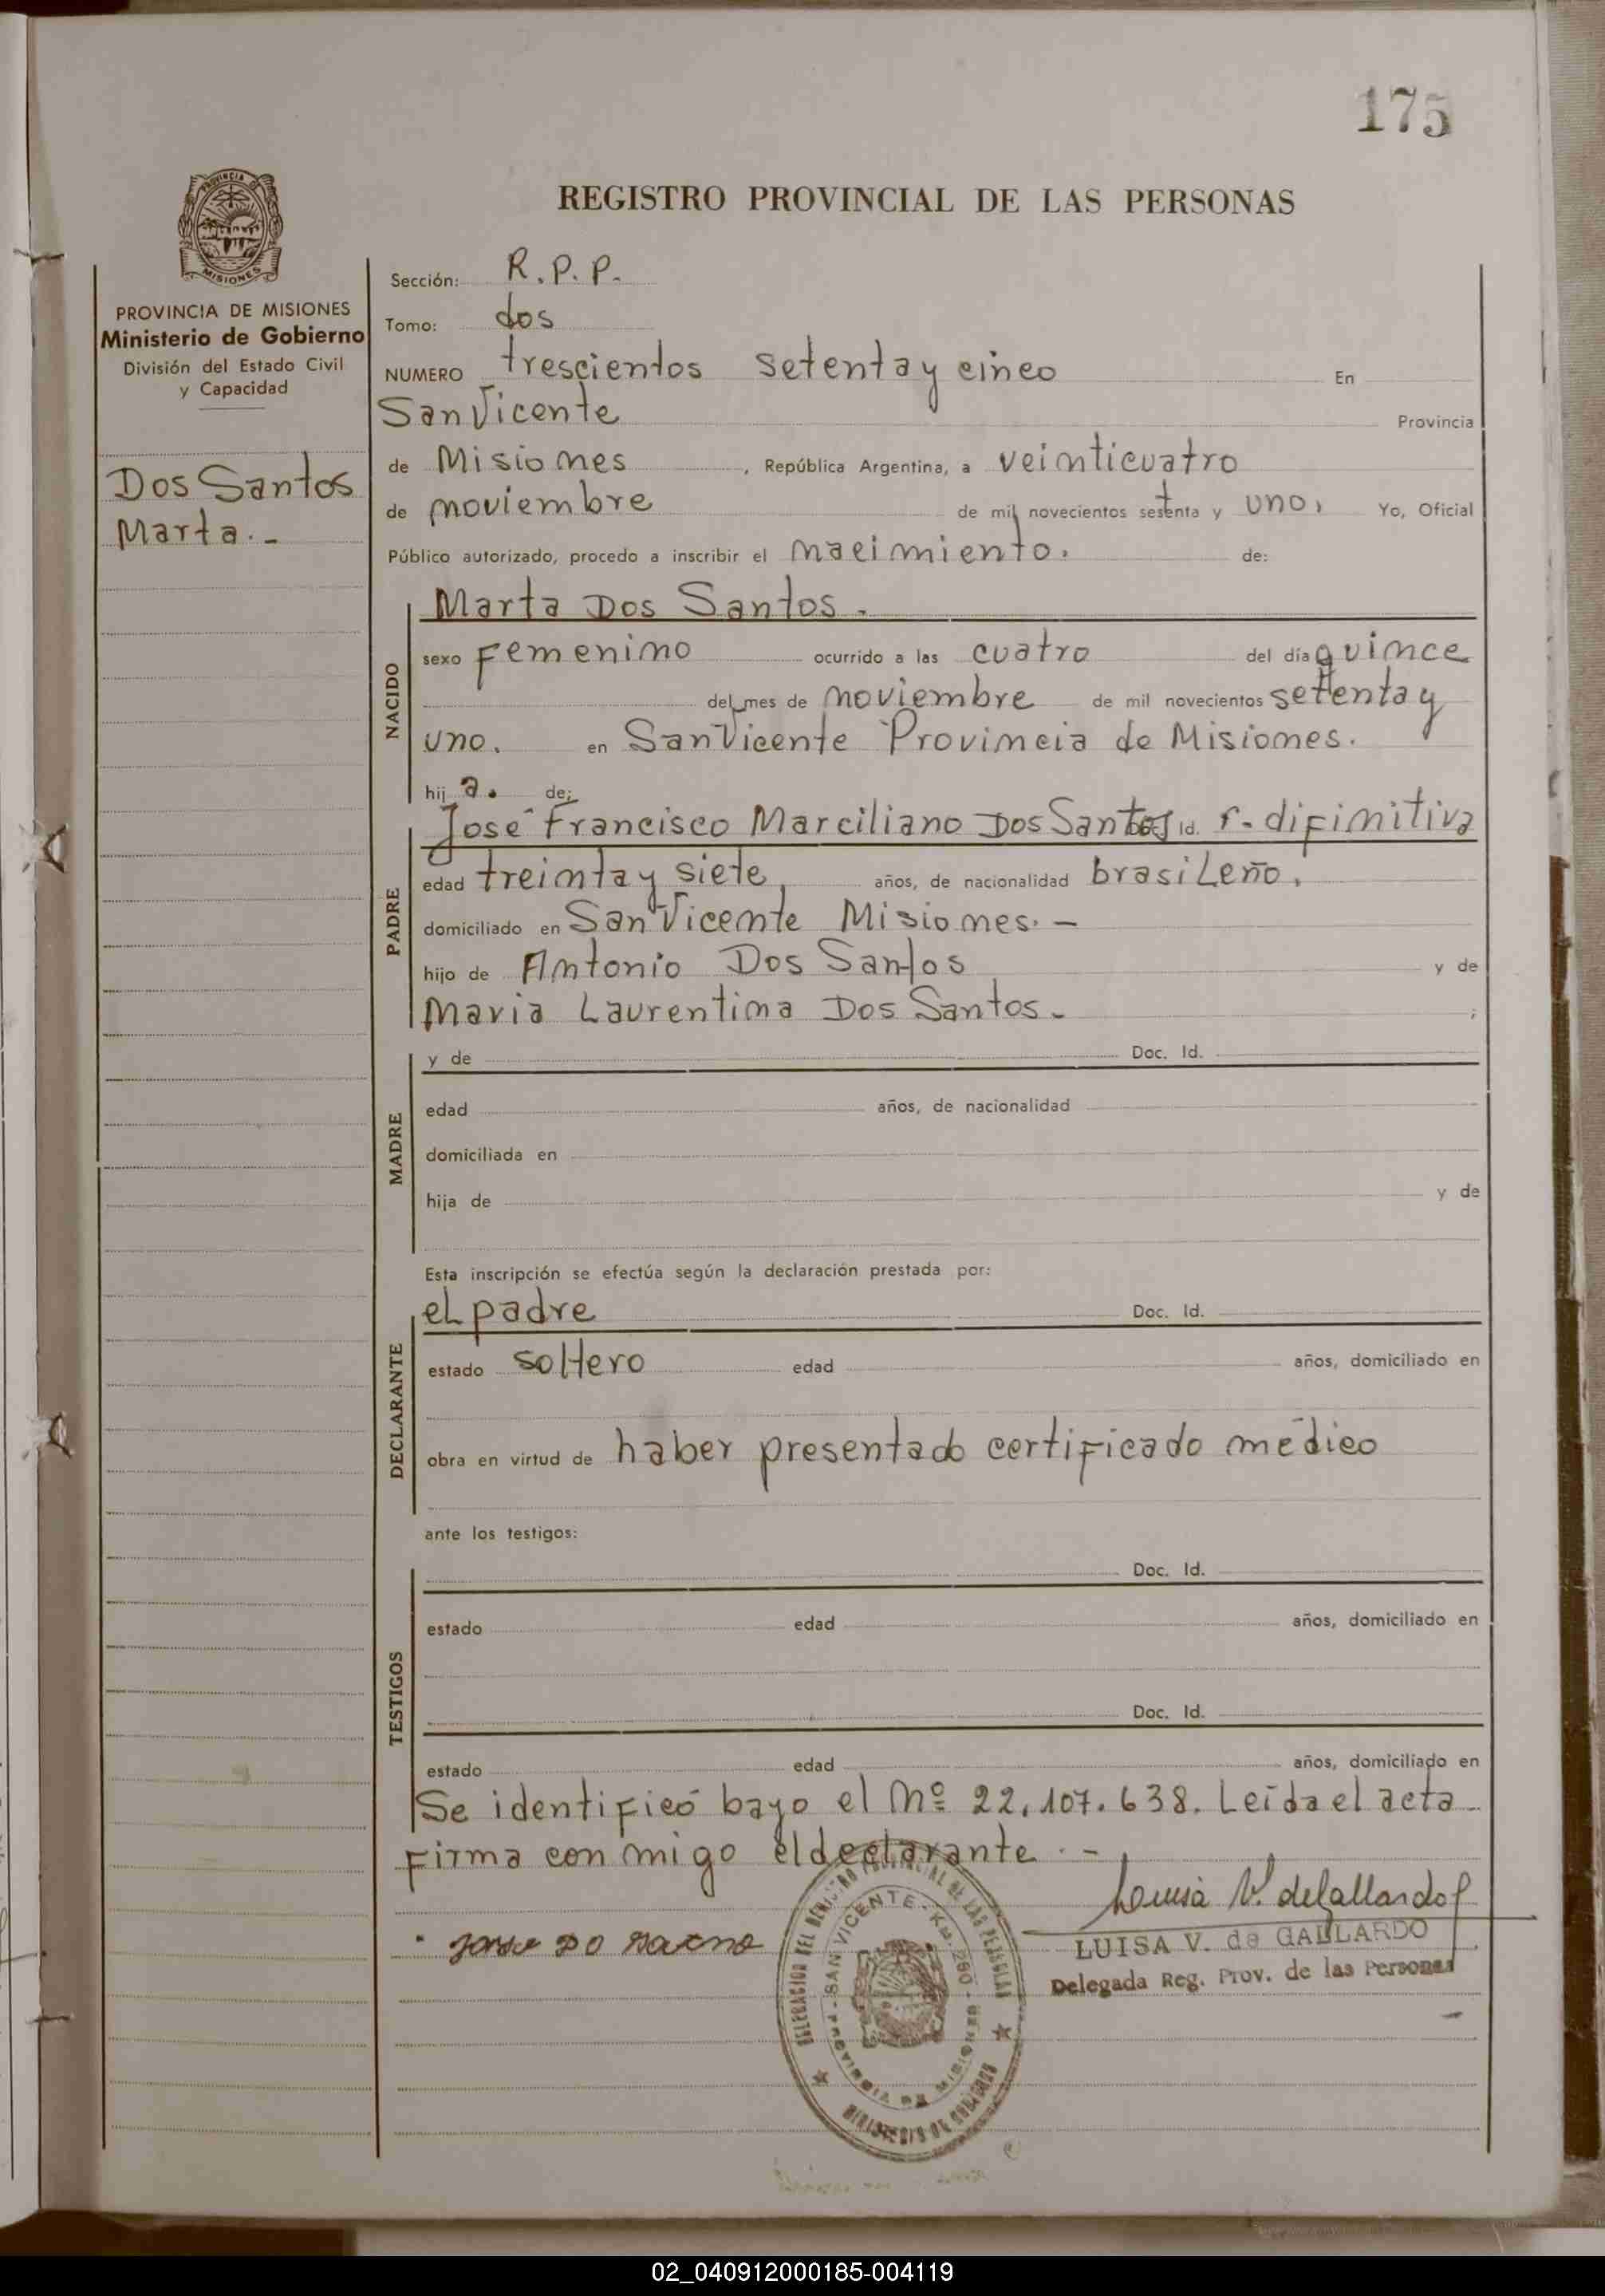 175
REGISTRO PROVINCIAL DE LAS PERSONAS
PROVINCIA DE MISIONES
Ministerio de Gobierno
División del Estado Civil
y Capacidad
Dos Santos
Marta.-
Sección: R.P.P.
Tomo: dos
NUMERO trescientos setenta y cinco En
San Vicente Provincia
de Misiones, República Argentina, a veinticuatro
de noviembre de mil novecientos setenta y uno, Yo, Oficial
Público autorizado, procedo a inscribir el nacimiento. de:
NACIDO
Marta Dos Santos.
sexo Femenino ocurrido a las cuatro del día quince
del mes de noviembre de mil novecientos setenta y
uno. en San Vicente Provincia de Misiones.
hij a. de;
PADRE
José Francisco Marciliano Dos Santos Id. r. difinitiva
edad treinta y siete, años, de nacionalidad brasileño,
domiciliado en San Vicente Misiones.-
hijo de Antonio Dos Santos y de
Maria Laurentina Dos Santos. ;
MADRE
y de Doc. Id.
edad años, de nacionalidad
domiciliada en
hija de y de
Esta inscripción se efectúa según la declaración prestada por:
DECLARANTE
el padre Doc. Id.
estado soltero edad años, domiciliado en
obra en virtud de haber presentado certificado médico
ante los testigos:
TESTIGOS
Doc. Id.
estado edad años, domiciliado en
Doc. Id.
estado edad años, domiciliado en
Se identificó bayo el Nº 22.107.638. Leída el acta
Firma con migo el declarante.-
Luisa V. de Gallardo
LUISA V. de GALLARDO
Delegada Reg. Prov. de las Personas
DELEGACION DEL REGISTRO PROVINCIAL DE LAS PERSONAS
SAN VICENTE - Km. 260 - PROVINCIA DE MISIONES
MINISTERIO DE GOBIERNO
02_040912000185-004119